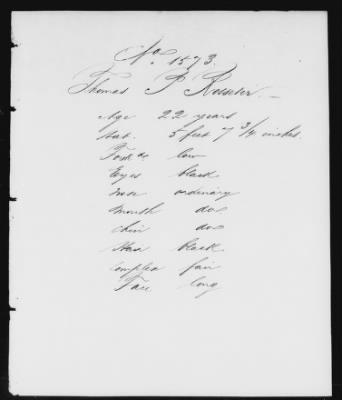 No. 1573.
Thomas P Rossiter
Age 22 years
stat. 5 feet 7 3/4 inches.
low
Eyes black
nose ordinary
mouth do
chin do
Hair black
complex fair
Face long